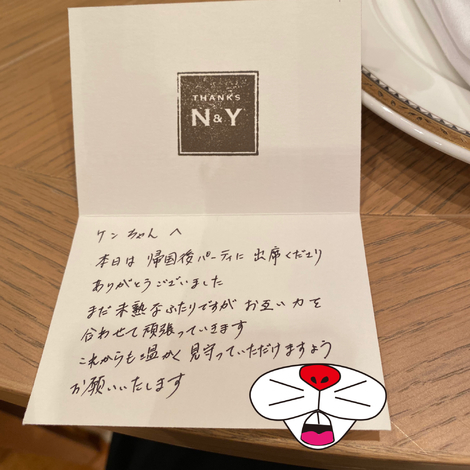 THANKS
N&Y
ケンちゃんへ
本日は 帰国後パーティに 出席くださり
ありがとうございました
まだ未熟なふたりですが お互い力を
合わせて頑張っていきます
これからも温かく見守っていただけますよう
お願いいたします